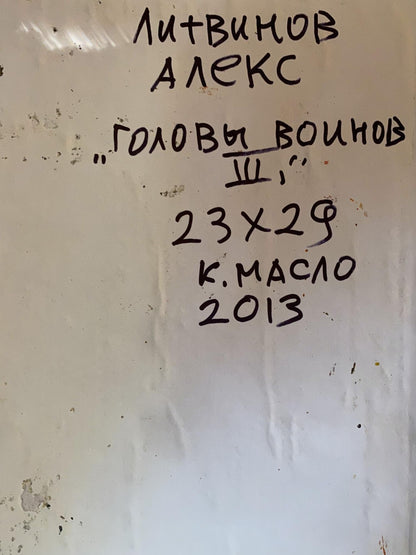 ЛИТВИНОВ
АЛЕКС
„ГОЛОВЫ ВОИНОВ
III,“
23X29
К. МАСЛО
2013